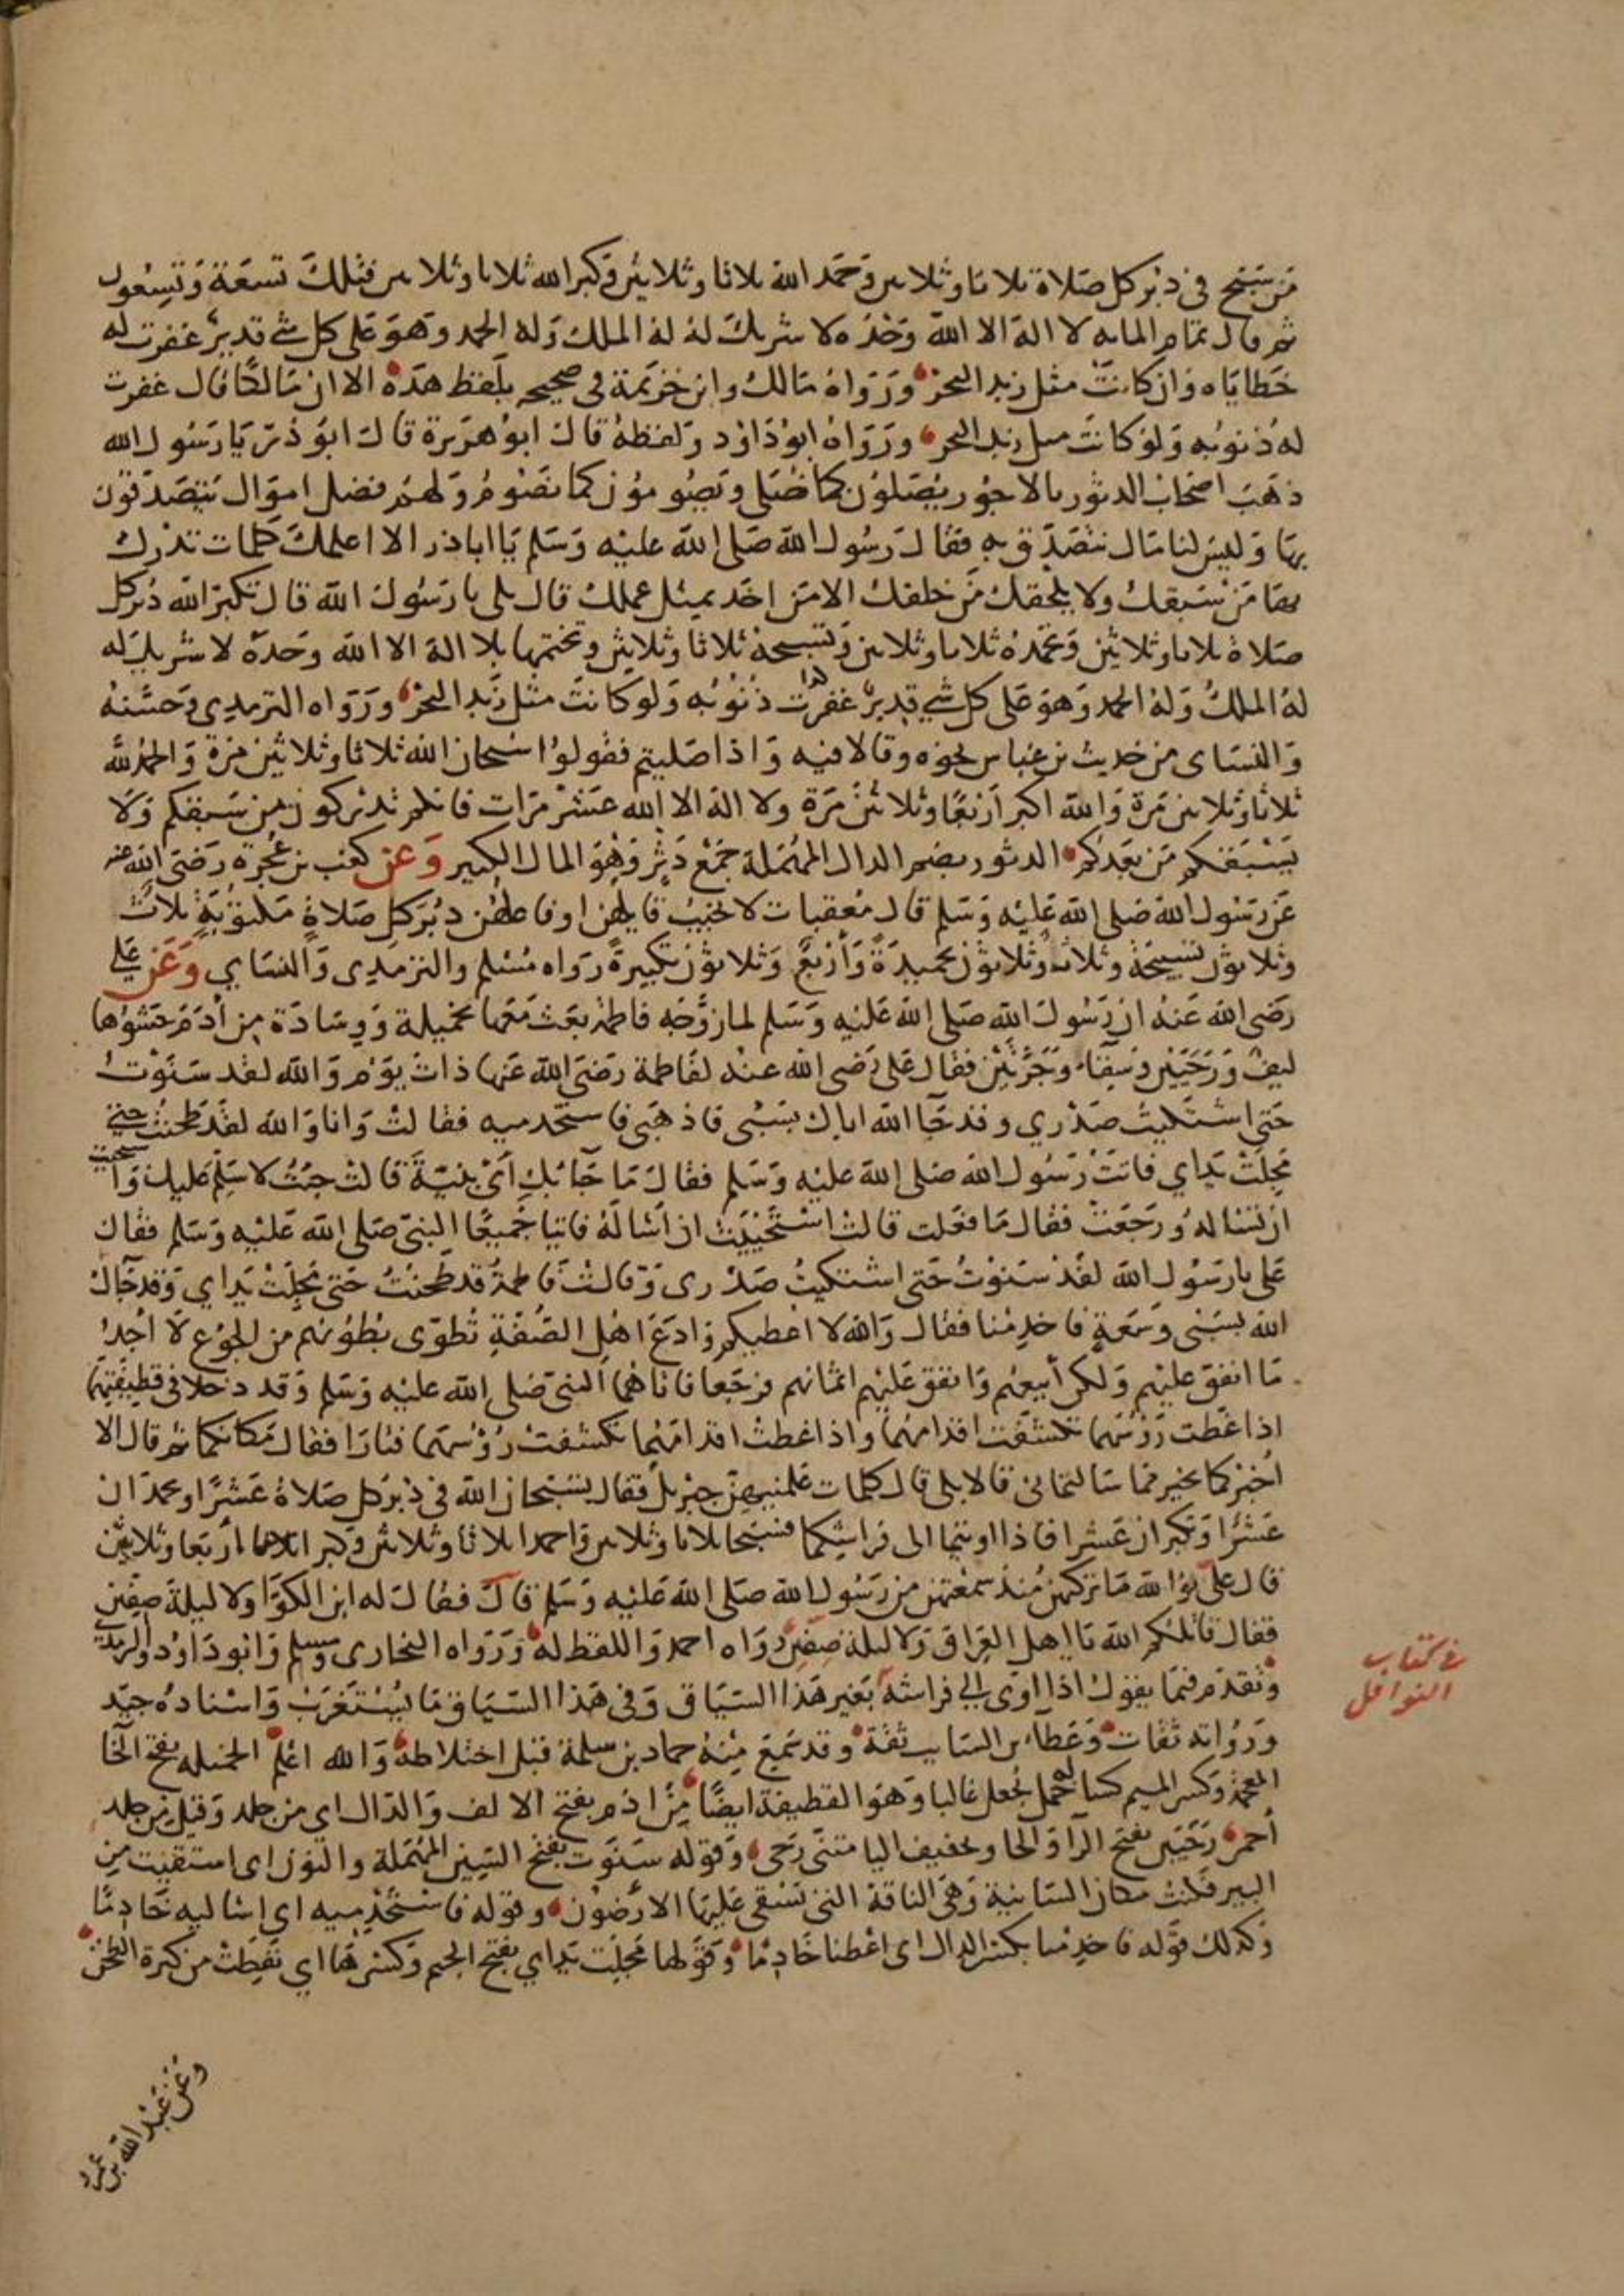 من سبح في دبر كل صلاة ثلاثا وثلاثين وحمد الله ثلاثا وثلاثين وكبر الله ثلاثا وثلاثين فتلك تسعة وتسعون
ثم قال تمام المايه لا اله الا الله وحده لا شريك له له الملك وله الحمد وهو على كل شي قدير غفرت له
خطاياه وان كانت مثل زبد البحر ورواه مالك وابن خزيمة في صحيحه بلفظ هذه الا ان مالكا قال غفرت
له ذنوبه ولو كانت مثل زبد البحر ورواه ابو داود ولفظه قال ابو هريرة قال ابو ذر يا رسول الله
ذهب اصحاب الدثور بالاجور يصلون كما نصلي ويصومون كما نصوم ولهم فضل اموال يتصدقون
بها وليس لنا مال نتصدق به فقال رسول الله صلى الله عليه وسلم يا ابا ذر الا اعلمك كلمات تدرك
بها من سبقك ولا يلحقك من خلفك الا من اخذ بمثل عملك قال بلى يا رسول الله قال تكبر الله دبر كل
صلاة ثلاثا وثلاثين وتحمده ثلاثا وثلاثين وتسبحه ثلاثا وثلاثين وتختمها بلا اله الا الله وحده لا شريك له
له الملك وله الحمد وهو على كل شي قدير غفرت له ذنوبه ولو كانت مثل زبد البحر ورواه الترمدي وحسنه
والنساى من حديث بن عباس نحوه وقالا فيه واذا صليتم فقولوا سبحان الله ثلاثا وثلاثين مرة والحمد لله
ثلاثا وثلاثين مرة والله اكبر اربعا وثلاثين مرة ولا اله الا الله عشر مرات فانكم تدركون من سبقكم ولا
يسبقكم من بعدكم الدثور بضم الدال المهملة جمع دثر وهو المال الكبير وعن كعب بن عجرة رضى الله عنه
عن رسول الله صلى الله عليه وسلم قال معقبات لا يخيب قايلهن او فاعلهن دبر كل صلاة مكتوبة ثلاث
وثلاثون تسبيحة وثلاث وثلاثون تحميدة واربع وثلاثون تكبيرة رواه مسلم والترمدى والنساي وعن على
رضى الله عنه ان رسول الله صلى الله عليه وسلم لما زوجه فاطمة بعث معها بخميلة ووسادة من أدم حشوها
ليف ورحيين وسقاء وجرتين فقال على رضى الله عنه لفاطمة رضى الله عنها ذات يوم والله لقد سنوت
حتى اشتكيت صدري وقد جا الله اباك بسبى فاذهبى فاستخدميه فقالت وانا والله لقد طحنت حتى
مجلت يداي فاتت رسول الله صلى الله عليه وسلم فقال ما جا بك أي بنية قالت جئت لاسلم عليك واستحيت
ان تساله ورجعت فقال ما فعلت قالت استحييت ان أساله فاتيا جميعا النبى صلى الله عليه وسلم فقال
على يا رسول الله لقد سنوت حتى اشتكيت صدرى وقالت فاطمة قد طحنت حتى مجلت يداي وقد جاك
الله بسبى وسعة فاخدمنا فقال والله لا اعطيكم وادع اهل الصفة تطوى بطونهم من الجوع لا أجد
ما انفق عليهم ولكن أبيعهم وانفق عليهم اثمانهم فرجعا فاتاهما النبى صلى الله عليه وسلم وقد دخلا في قطيفتهما
اذا غطت رؤسهما تكشفت اقدامهما واذا غطت اقدامهما تكشفت رؤسهما فثارا فقال مكانكما ثم قال الا
أخبركما بخير مما سالتمانى قالا بلى قال كلمات علمنيهن جبريل فقال تسبحان الله في دبر كل صلاة عشرا وتحمدان
عشرا وتكبران عشرا فاذا اويتما الى فراشكما فسبحا ثلاثا وثلاثين واحمدا ثلاثا وثلاثين وكبرا أربعا وثلاثين
قال على فوالله ما تركتهن منذ سمعتهن من رسول الله صلى الله عليه وسلم قال فقال له ابن الكوا ولا ليلة صفين
فقال قاتلكم الله يا اهل العراق ولا ليلة صفين رواه احمد واللفظ له ورواه البخارى ومسلم وابو داود والترمدى
وتقدم فيما يقول اذا اوى الى فراشه بغير هذا السياق وفى هذا السياق ما يستغرب واسناده جيد
ورواته ثقات وعطاء بن السايب ثقة وقد سمع منه حماد بن سلمة قبل اختلاطه والله اعلم الخميله بفتح الخا
المعجمة وكسر الميم كسا له خمل يجعل غالبا وهو القطيفة ايضا من اذم بفتح الالف والدال اي من جلد وقيل من جلد
أحمر رحيين بفتح الرا والحا وتخفيف اليا مثنى رحى وقوله سنوت بفتح السين المهملة والنون اى استقيت من
البير فكنت مكان السانية وهى الناقة التى تسقى عليها الارضون وقوله فاستخدميه اي اساليه خادما
وكذلك قوله فاخدمنا بكسر الدال اى اعطنا خادما وقولها مجلت يداي بفتح الجيم وكسرها اي نفطت من كثرة الطحن
وعن عبد الله بن عمرو
في كتاب
النوافل